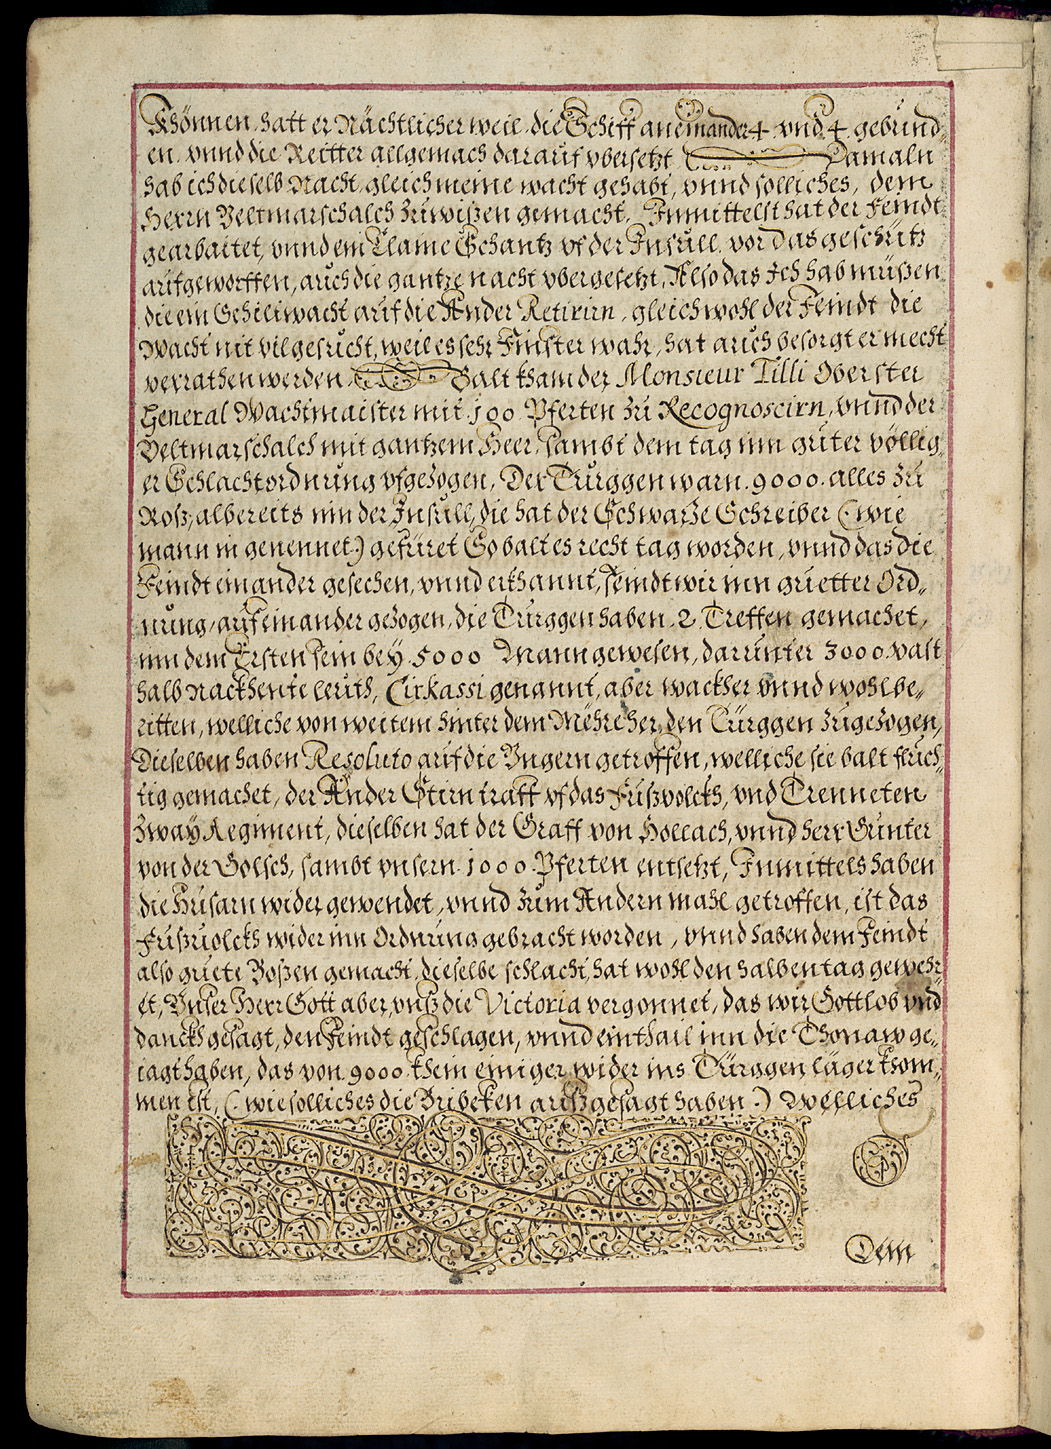 Khönnen, hatt er Nächtlicher weil, die Schiff aneinander 4. vnd 4. gebund„
en, vnnd die Reitter allgemach darauf vbersetzt. Damaln
hab ich dieselb Nacht, gleich meine wacht gehabt, vnnd solliches, dem
Herrn Veltmarschalch zuwißen gemacht, Inmittelst hat der Feindt
gearbaitet, vnnd ein Claine Schantz vf der Insull, vor das geschütz
aufgeworffen, auch die gantze nacht vbergesetzt, Also das Ich hab müßen
die ein Schiltwacht auf die Ander Retirirn, gleich wohl der Feindt die
Wacht nit vil gesucht, weil es sehr Finster wahr, hat auch besorgt er mecht
verrathen werden, Balt kham der Monsieur Tilli Oberster
General Wachtmaister mit 100 Pferten zu Recognoscirn, vnnd der
Veltmarschalch mit gantzem Heer, sambt dem tag inn guter völlig„
er Schlachtordnung vfgezogen, Der Türggen warn .9000. alles zu
Roß, albereits inn der Insull, die hat der Schwarze Schreiber (: wie
mann in genennet :) gefüret So balt es recht tag worden, vnnd das die
Feindt einander gesechen, vnnd erkhannt, seindt wir inn guetter Ord„
nung, auf einander gezogen, die Türggen haben .2. Treffen gemachet,
inn dem Ersten sein bey .5000 Mann gewesen, darunter 3000. vast
halb Nackhente leuth, Cirkassi genannt, aber wackher vnnd wohl be„
ritten, welliche von weitem hinter dem Mehr her, den Türggen zugezogen,
Dieselben haben Resoluto auf die Vngern getroffen, welliche sie balt flüch„
tig gemachet, der Ander Stirn traff vf das Fußvolckh, vnd Trenneten
Zway Regiment, dieselben hat der Graff von Hollach, vnnd herr Günter
von der Golsch, sambt vnsern .1000. Pferten entsetzt, Inmittels haben
die Husarn wider gewendet, vnnd zum Andern mahl getroffen, ist das
Fußuolckh wider inn Ordnung gebracht worden, vnnd haben dem Feindt
also guete Boßen gemacht, dieselbe schlacht, hat wohl den halben tag gewehr„
et, Vnser Herr Gott aber, vnß die Victoria vergonnet, das wir Gott lob vnd
danckh gesagt, den Feindt geschlagen, vnnd ein thail inn die Thonaw ge„
iagt haben, das von .9000. khein einiger wider ins Türggen läger khom„
men ist, (: wie solliches die Bribeken außgesagt haben :) welliches
Dem